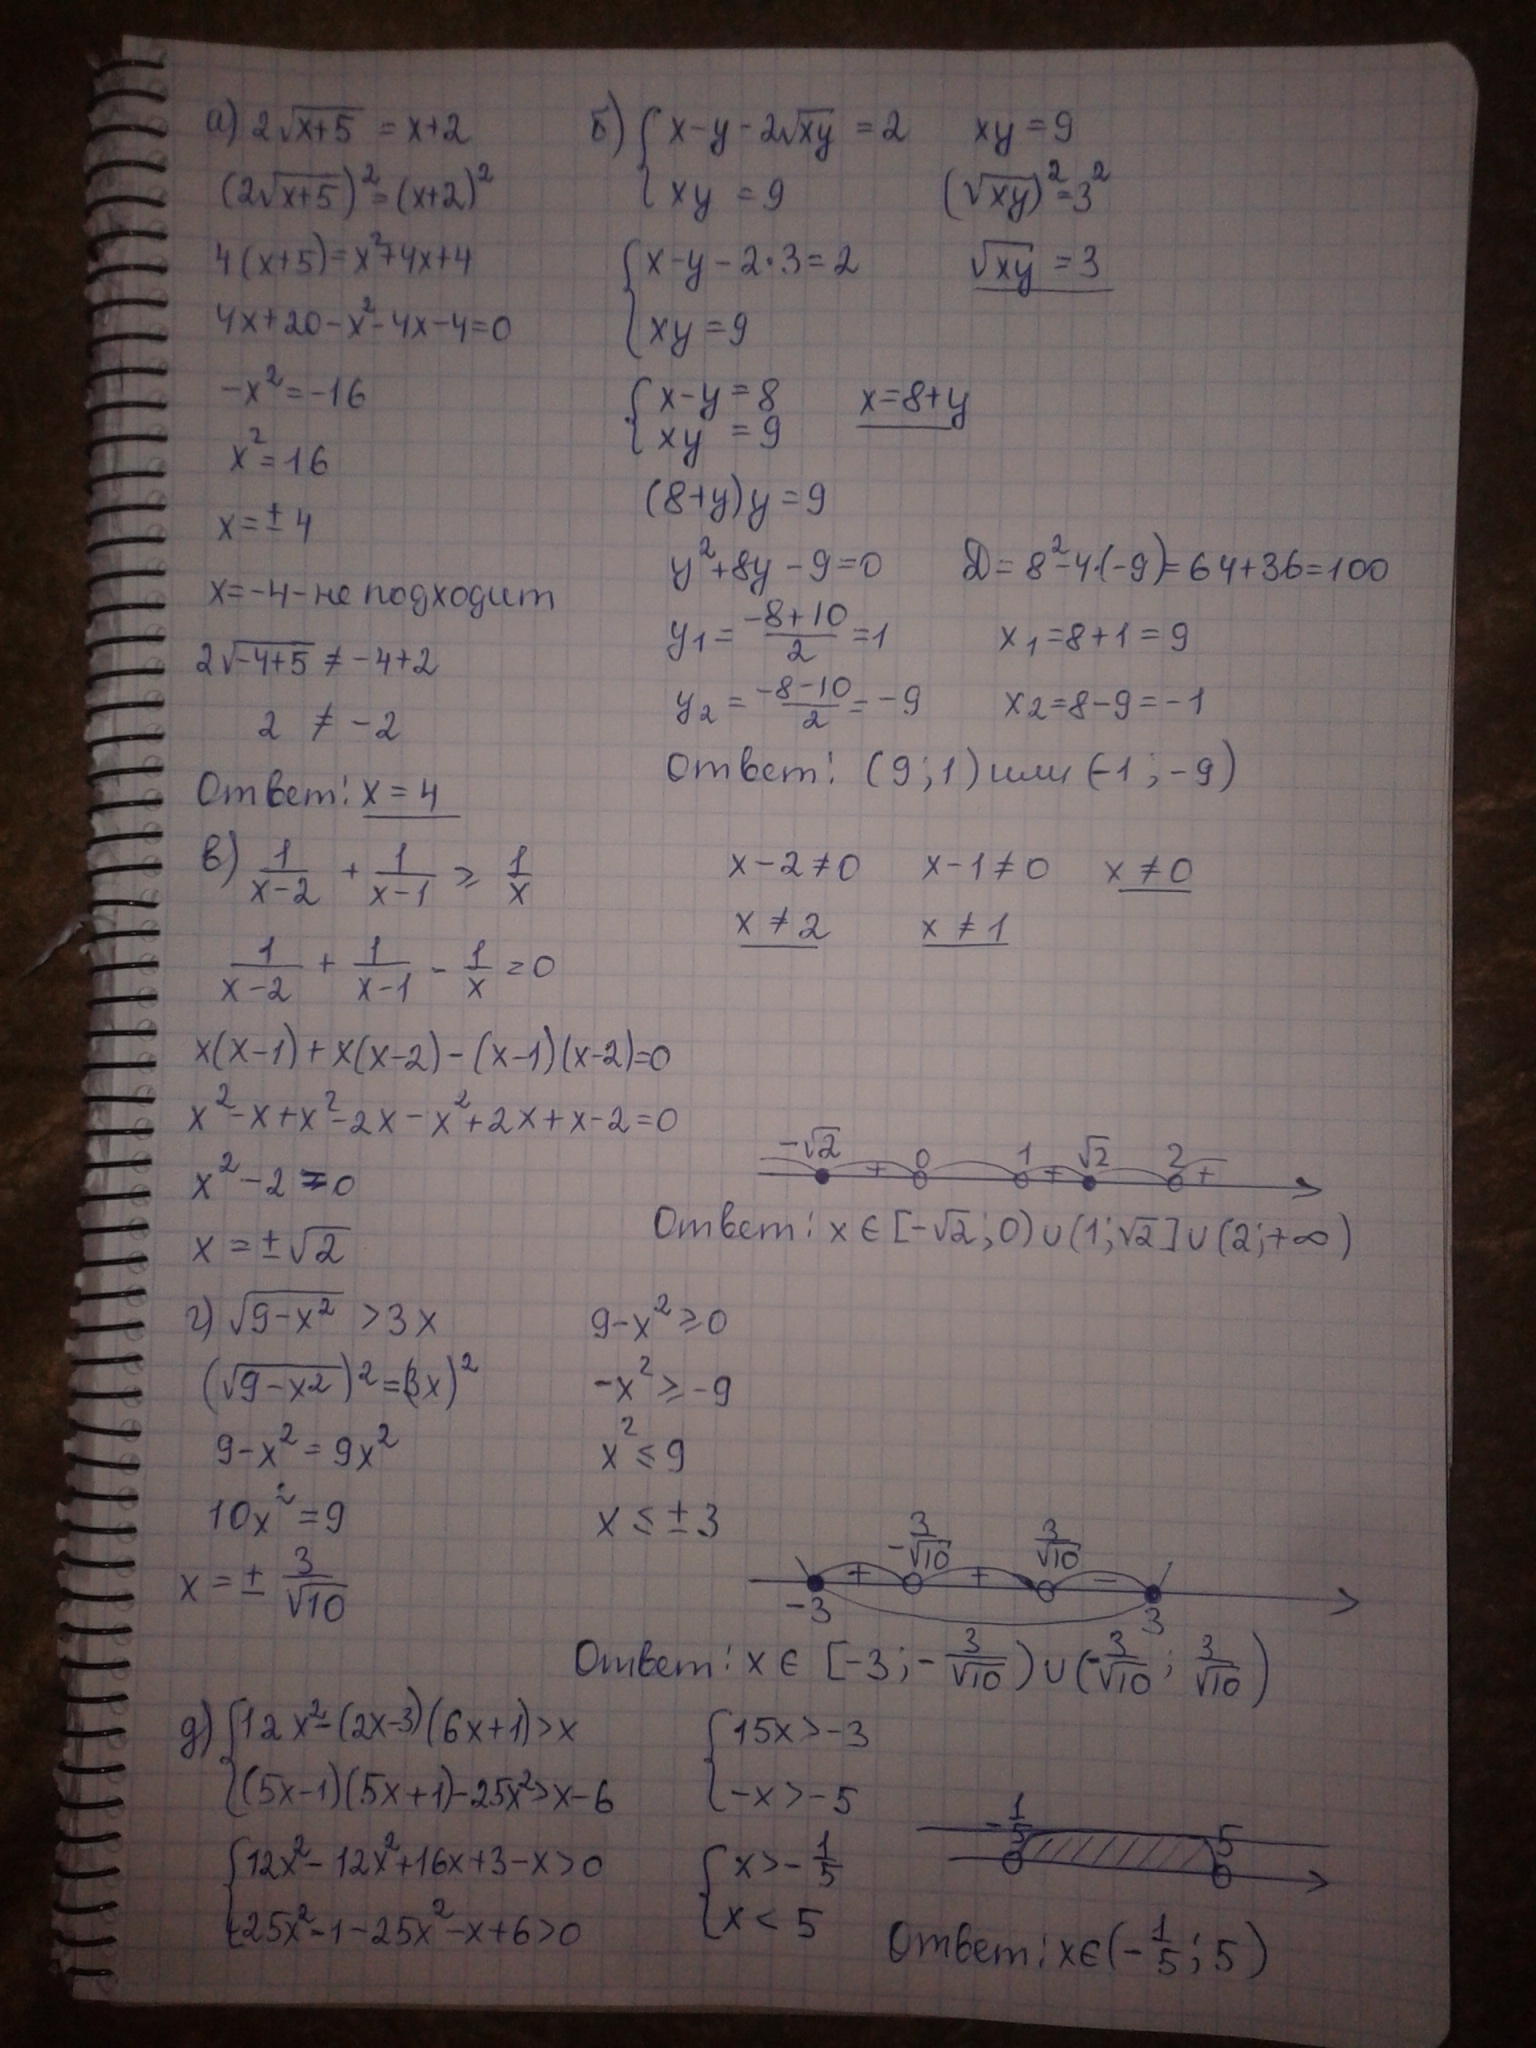 а) 2√(x+5) = x+2
(2√(x+5))² = (x+2)²
4(x+5) = x²+4x+4
4x+20-x²-4x-4=0
-x²=-16
x²=16
x=±4
x=-4-не подходит
2√(-4+5) ≠ -4+2
2 ≠ -2
Ответ: x = 4
б) { x-y-2√(xy) = 2    xy = 9
xy = 9    (√(xy))²=3²
{ x-y-2·3=2    √(xy) = 3
xy=9
{ x-y=8    x=8+y
xy = 9
(8+y)y=9
y²+8y-9=0    D=8²-4·(-9)=64+36=100
y₁=(-8+10)/2=1    x₁=8+1=9
y₂=(-8-10)/2=-9    x₂=8-9=-1
Ответ: (9;1) или (-1;-9)
в) 1/(x-2) + 1/(x-1) ≥ 1/x    x-2≠0    x-1≠0    x≠0
x≠2    x≠1
1/(x-2) + 1/(x-1) - 1/x = 0
x(x-1)+x(x-2)-(x-1)(x-2)=0
x²-x+x²-2x-x²+2x+x-2=0
x²-2=0
x=±√2
-√2 + 0 1 + √2 2 +
Ответ: x∈[-√2;0)∪(1;√2]∪(2;+∞)
г) √(9-x²) >3x    9-x²≥0
(√(9-x²))²=(3x)²    -x²≥-9
9-x²=9x²    x²≤9
10x²=9    x≤±3
x=± 3/√10
-3 + -3/√10 + 3/√10 - 3
Ответ: x∈[-3;-3/√10)∪(-3/√10;3/√10)
д) { 12x²-(2x-3)(6x+1)>x    { 15x>-3
(5x-1)(5x+1)-25x²>x-6    -x>-5
{ 12x²-12x²+16x+3-x>0    { x>-1/5
25x²-1-25x²-x+6>0    x<5
-1/5 5
Ответ: x∈(-1/5;5)